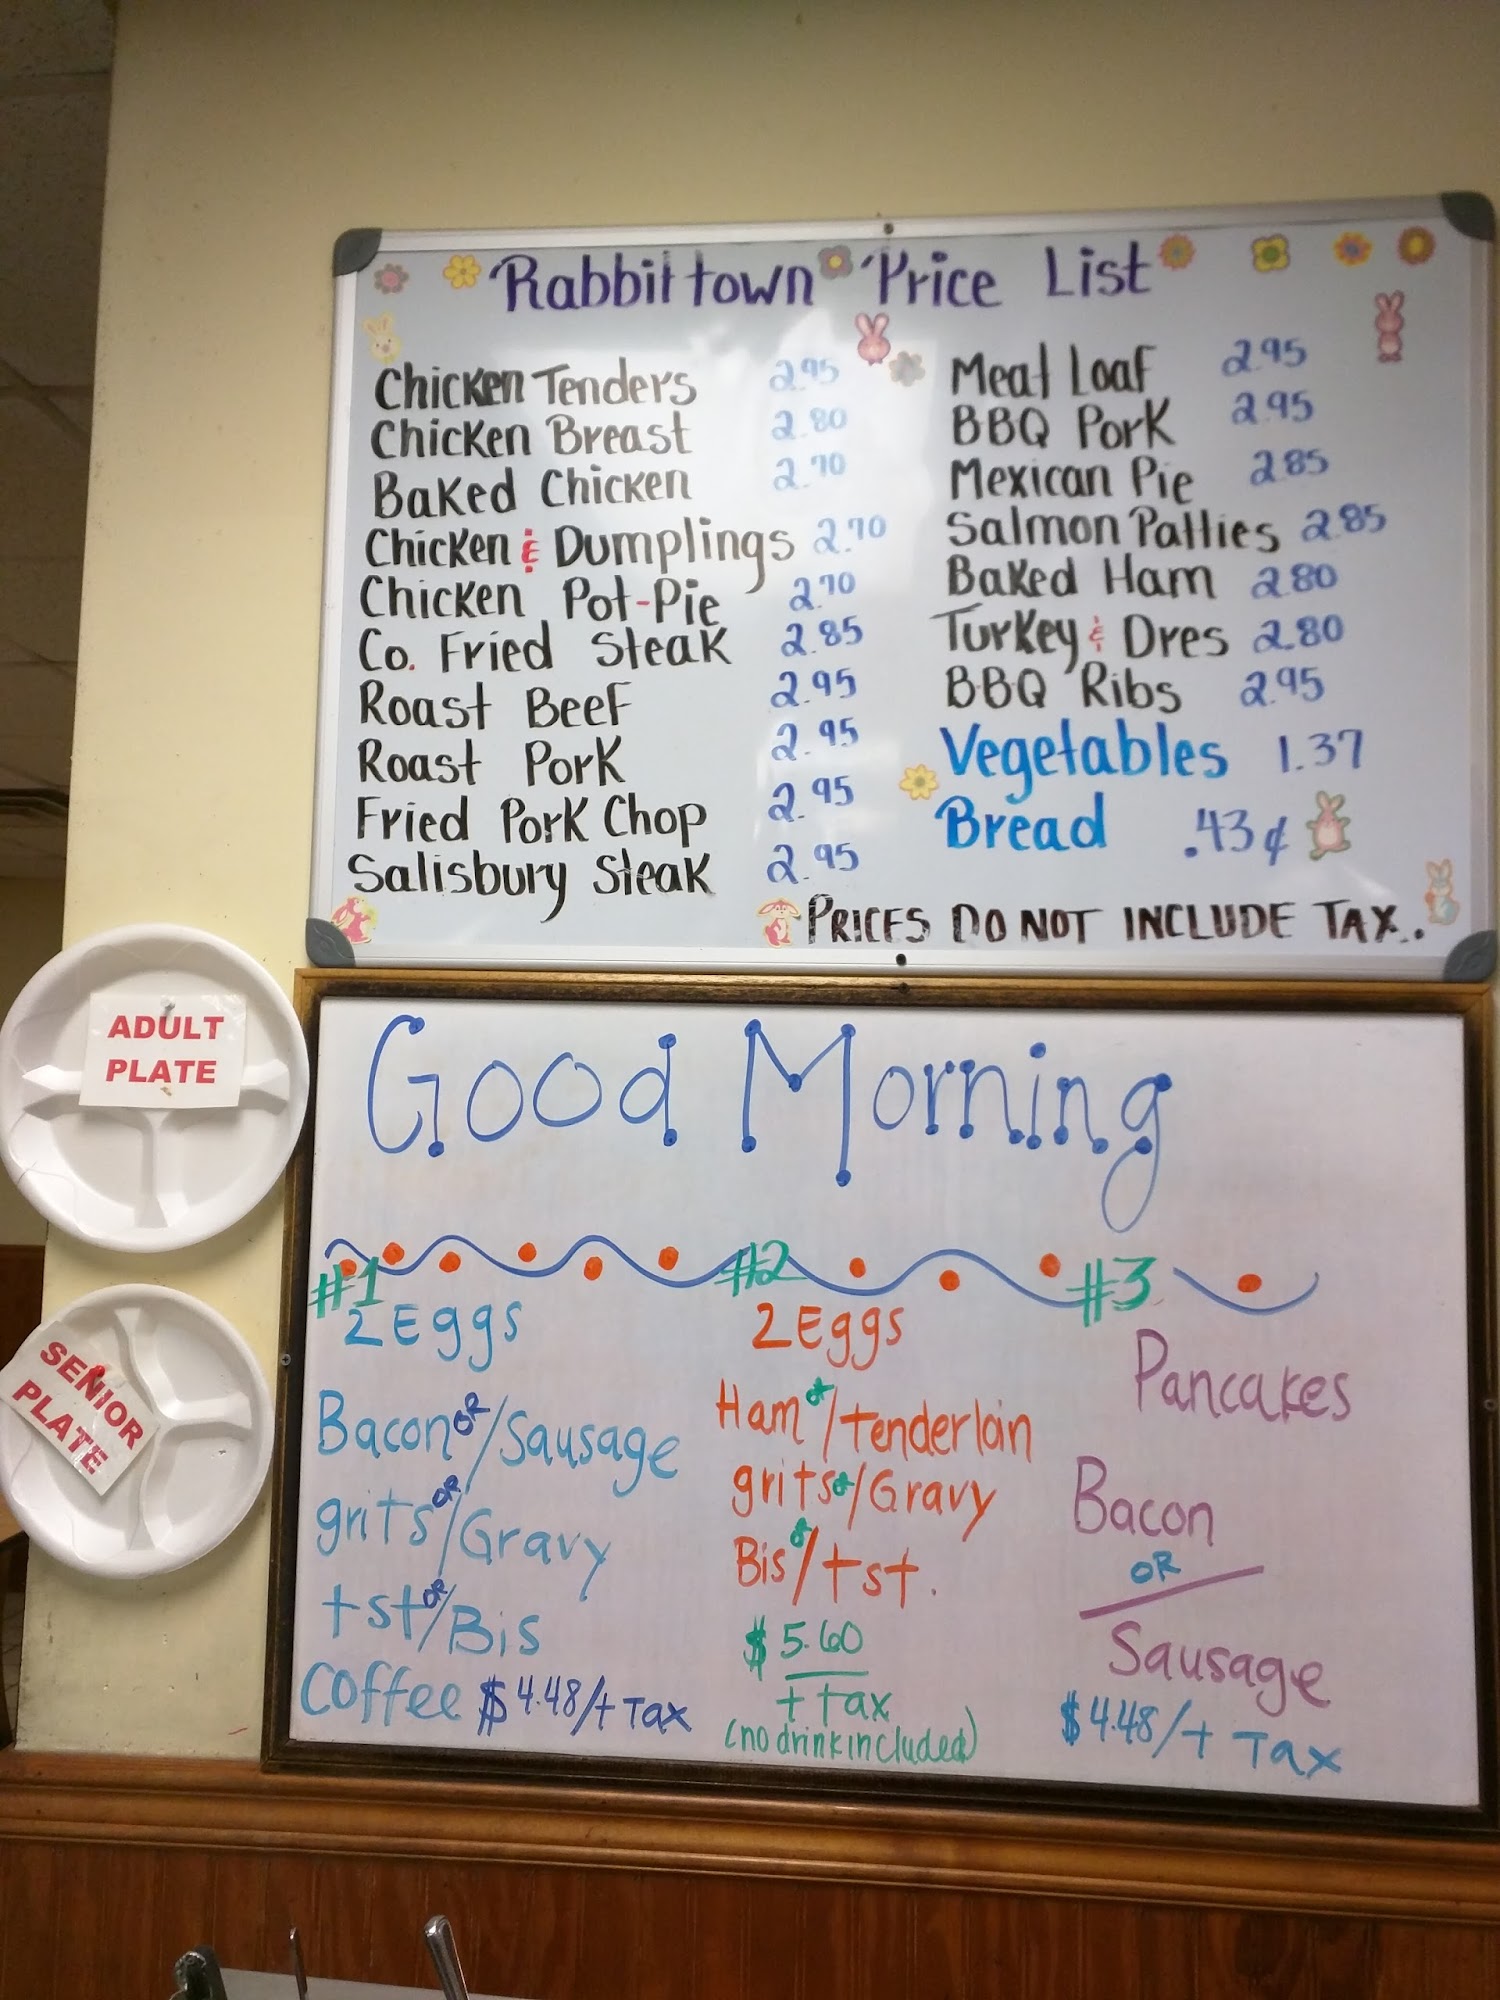 Rabbittown Price List
Chicken Tenders 2.95
Chicken Breast 2.80
Baked Chicken 2.70
Chicken & Dumplings 2.70
Chicken Pot-Pie 2.70
Co. Fried Steak 2.85
Roast Beef 2.95
Roast Pork 2.95
Fried Pork Chop 2.95
Salisbury Steak 2.95
Meat Loaf 2.95
BBQ Pork 2.95
Mexican Pie 2.85
Salmon Patties 2.85
Baked Ham 2.80
Turkey & Dres 2.80
B.B.Q Ribs 2.95
Vegetables 1.37
Bread .43¢
PRICES DO NOT INCLUDE TAX.
ADULT
PLATE
SENIOR
PLATE
Good Morning
#1
2 Eggs
Bacon OR/Sausage
grits OR/Gravy
tst OR/Bis
Coffee $4.48/+ Tax
#2
2 Eggs
Ham or/tenderloin
grits or/Gravy
Bis or/tst.
$5.60
+ tax
(no drink included)
#3
Pancakes
Bacon
OR
Sausage
$4.48/+ Tax